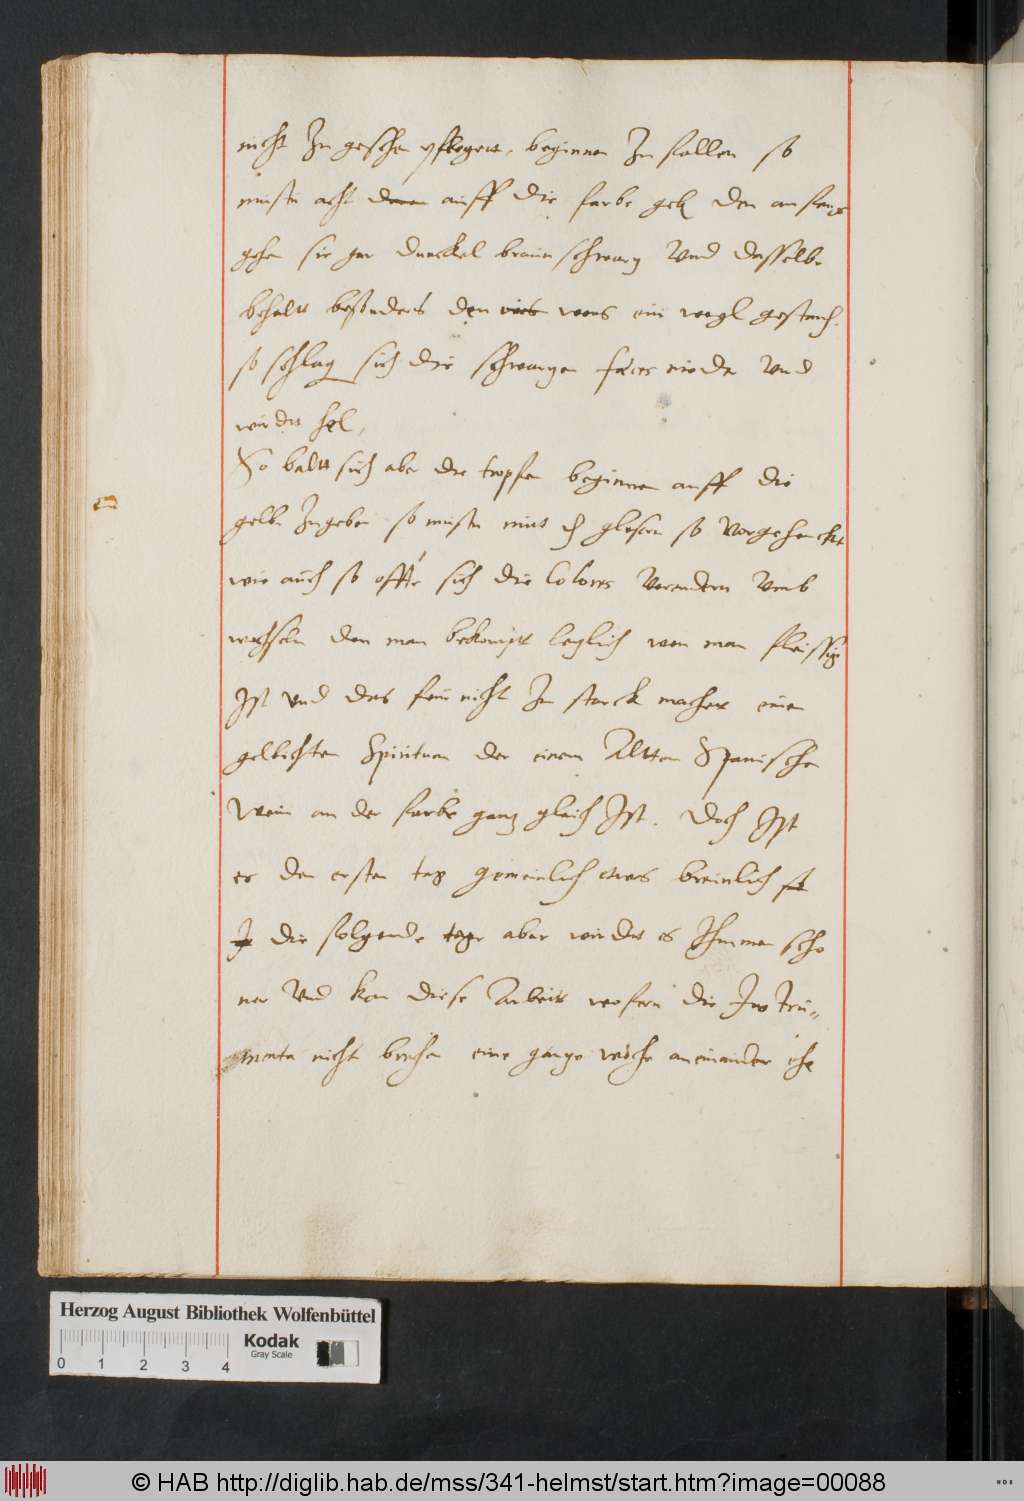 nicht Zu geschehen pflegett, beginnen Zu fallen so
mustu acht auff die farbe geb den anfang
gehen sie gar dunckel braun schwarz Vnd dasselbe
behalt besonders den was ein wegl gestanden
so schlag sich die schwarzen fæces nieder Vnd
wirdts hel,
So baldt sich aber die tropfen beginnen auff die
gelbe Zugeben so mustu mit gleser so Vorgehenckt
wie auch so offte sich die Colores Verendern Vmb
wechseln den man bekompt lezlich wen man fleissig
Ist vnd das feur nicht Zu starck machet einen
gelblichten Spiritum der einem Altten Spanischen
Wein an der farbe ganz gleich Ist. Doch Ist
er den ersten tag gemeinlich etwas breunlich
die folgende tage aber wirdt es Immer scho
ner Vnd kan diese Arbeit wofern die Instru„
menta nicht brechen eine ganze woche aneinander ehe
Herzog August Bibliothek Wolfenbüttel
0 1 2 3 4
Kodak
Gray Scale
© HAB http://diglib.hab.de/mss/341-helmst/start.htm?image=00088